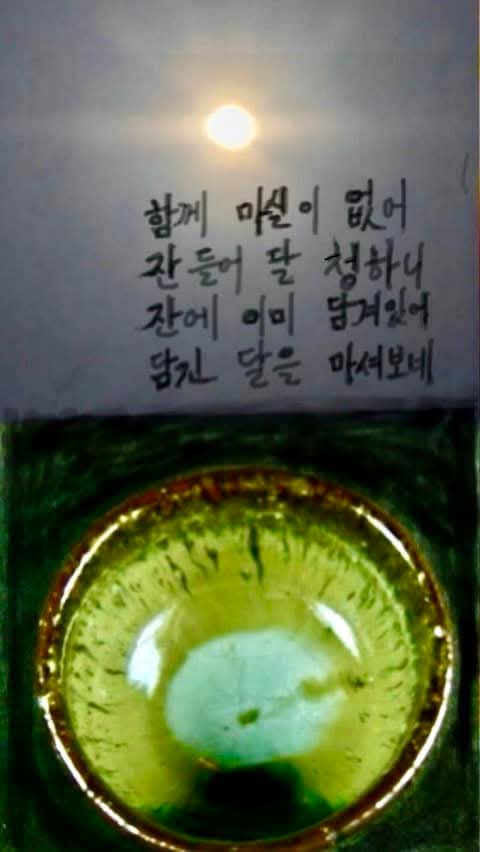 함께 마실이 없어
잔 들어 달 청하니
잔에 이미 담겨있어
담긴 달을 마셔보네